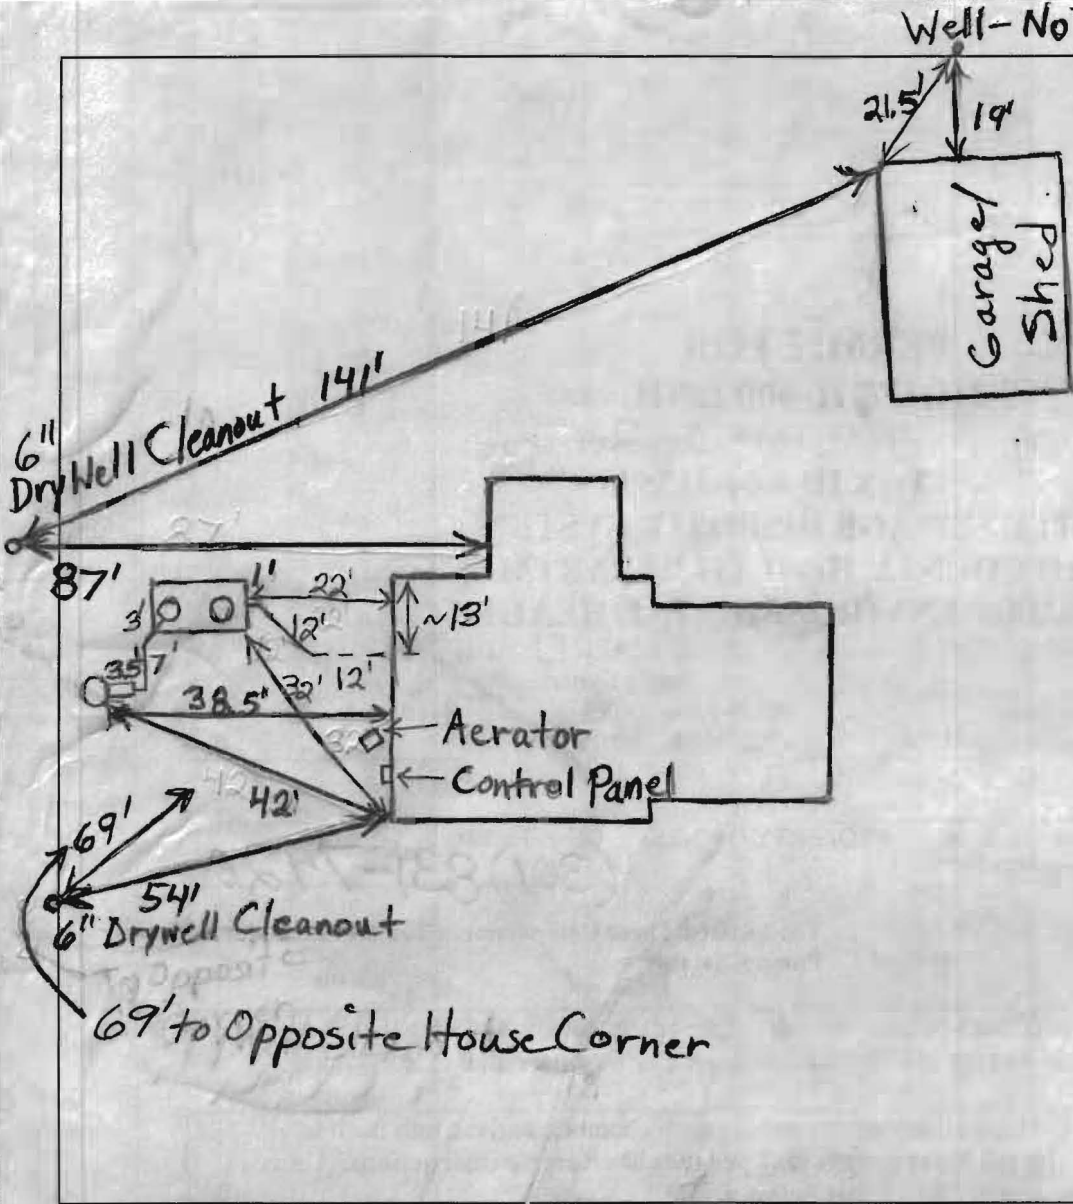 Well-No
21.5'
19'
Garage/
Shed
141'
6"
DryWell Cleanout
87'
1'
22'
~13'
3'
12'
12'
35'
7'
32'
38.5'
Aerator
Control Panel
42'
69'
54'
6" Drywell Cleanout
69' to Opposite House Corner